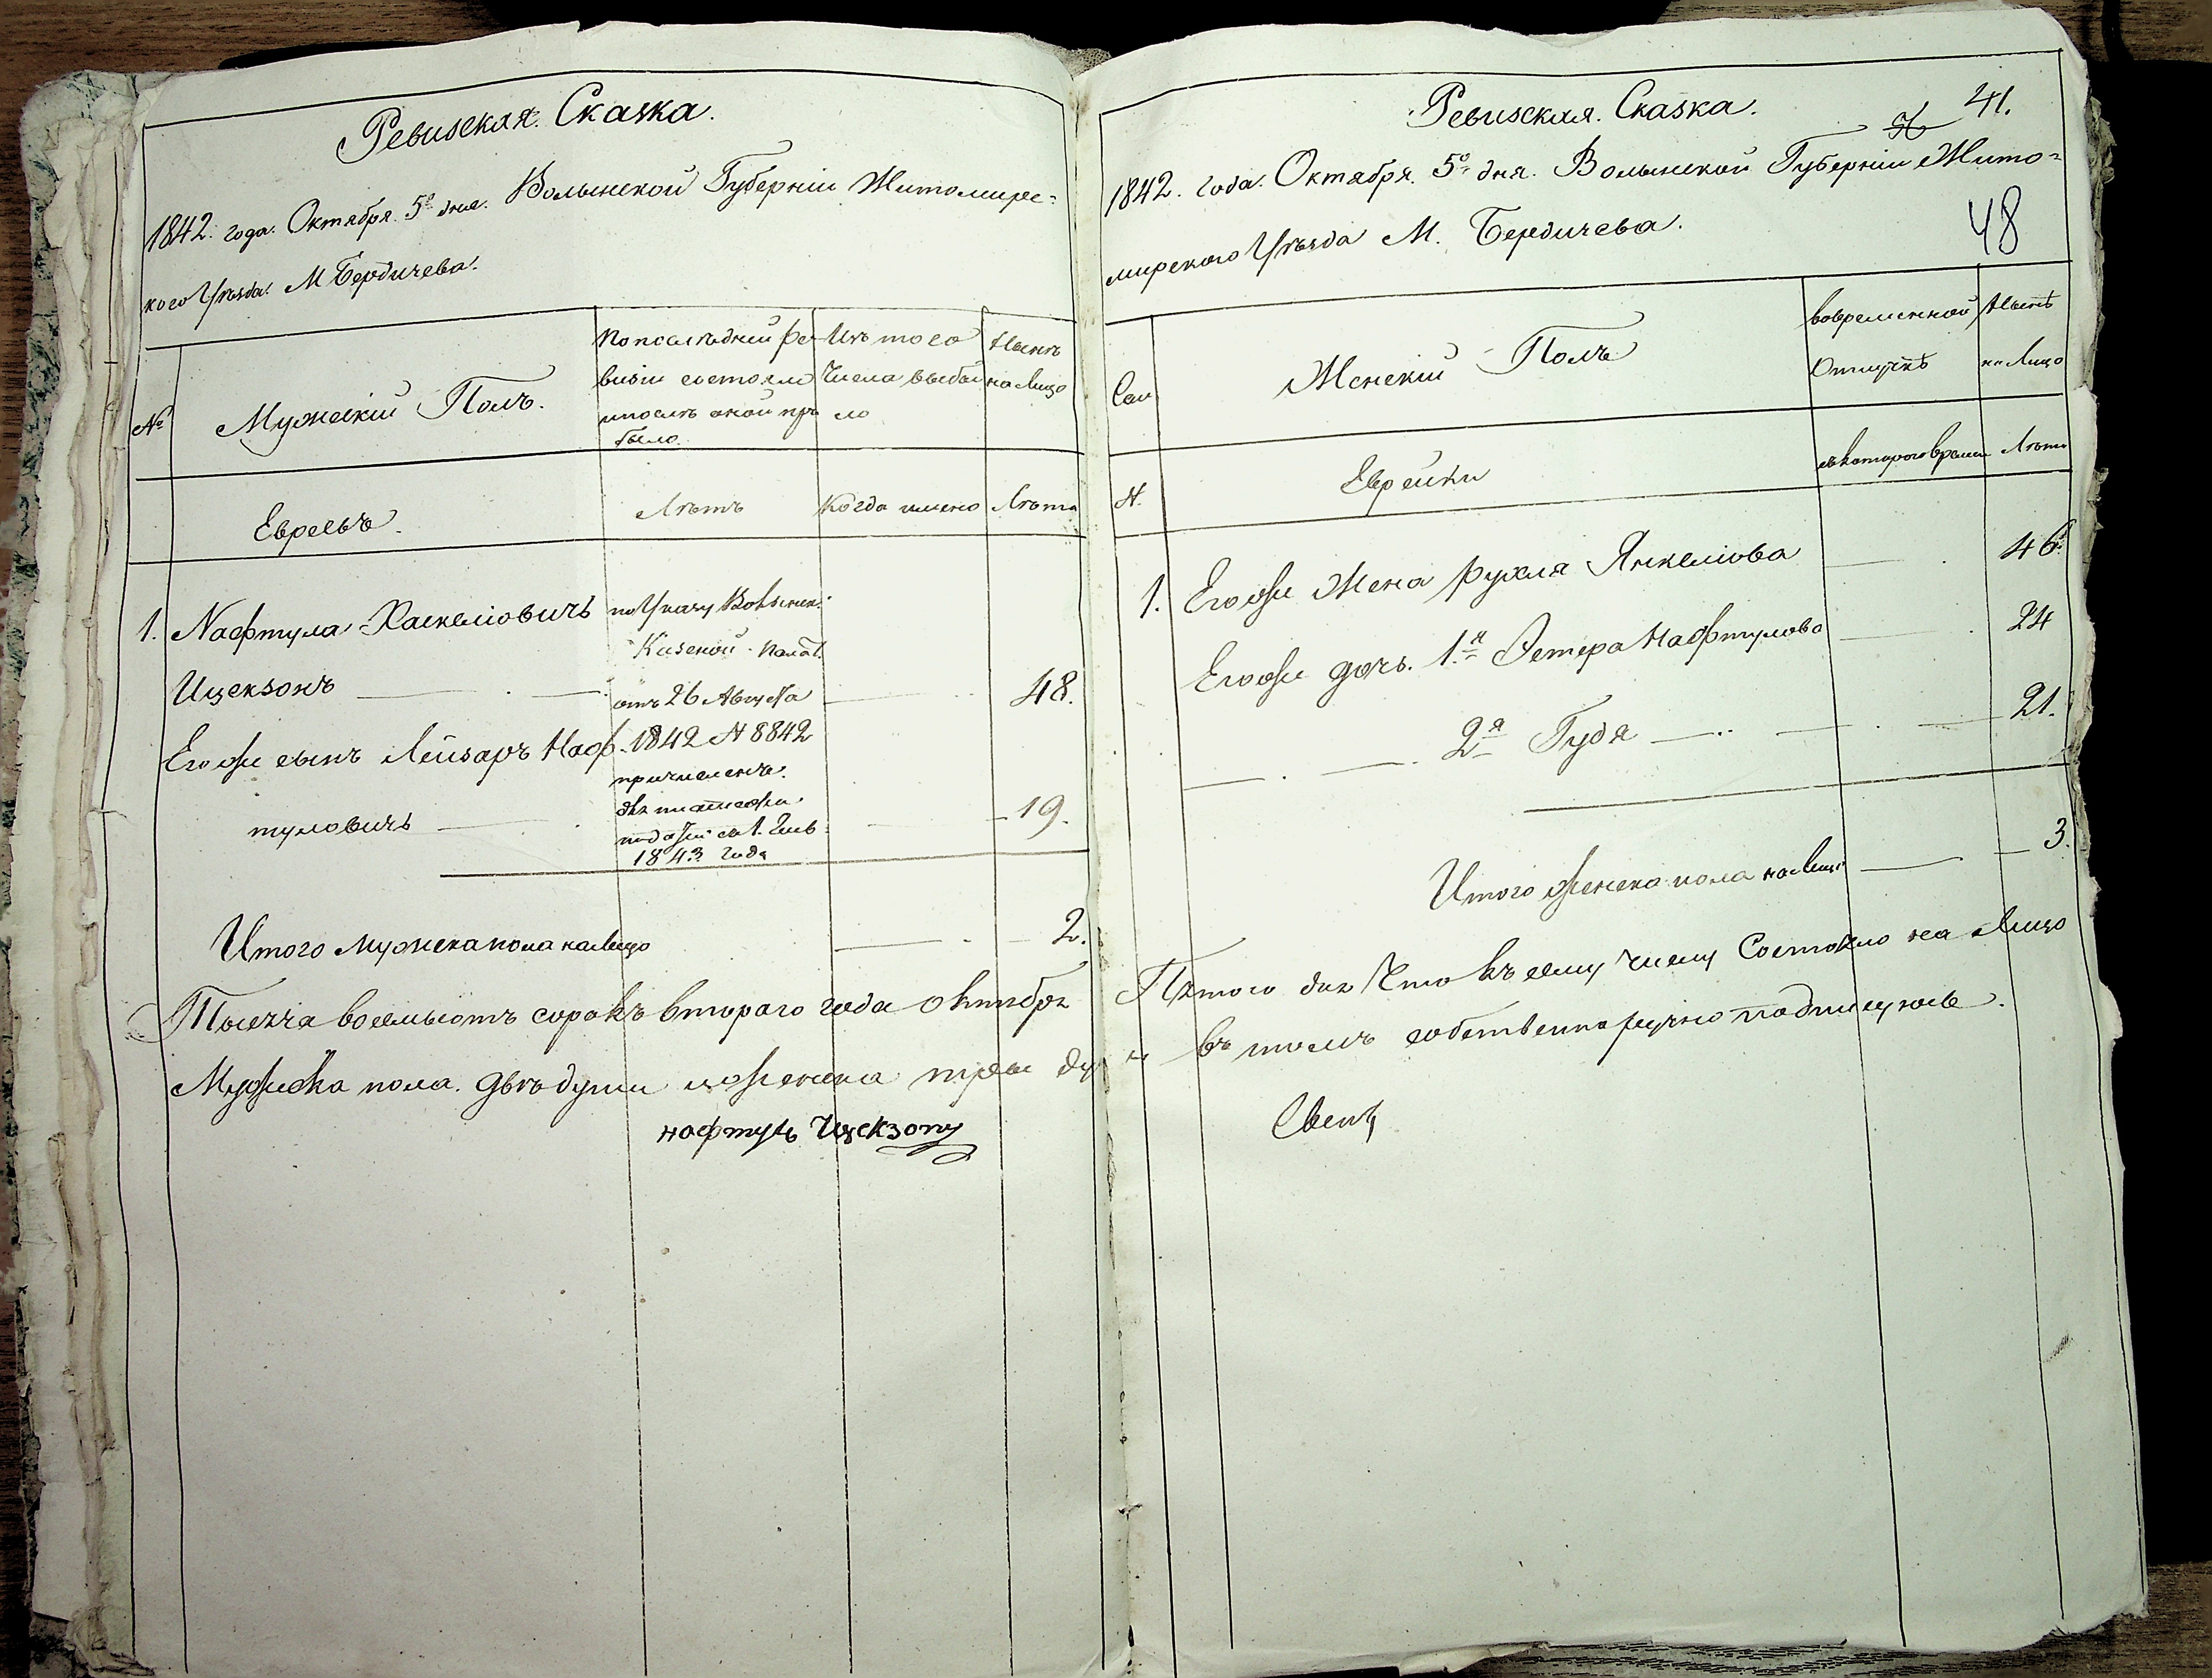 Ревизская. Сказка.
1842. года. Октября. 5го дня. Волынской Губерніи Житомирс-
кого Уѣзда. М Бердичева.
№
Мужескій Полъ.
По последней ре
визіи состояло
ипослѣ оной при
было.
Изъ того
Числа выбы
ло
Нынѣ
на Лицо
Евреевъ.
Лѣтъ
Когда имено
Лѣта
1. Нафтула Хаскеліовичъ
Ицекзонъ 48.
Егоже сынъ Лейзаръ Наф-
туловичъ 19.
по Указу Волынск:
Казеной Палат.
отъ 26 Августа
1842 N 8842
причисленъ
1843 года
Итого мужска пола налицо 2.
Тысяча восемьсотъ сорокъ втораго года октября
Мужеска пола. двѣ души иженска три ду
нафтуль Ицекзону
Ревизская. Сказка.
41.
48
1842. года. Октября. 5го дня. Волынской Губерніи Жито-
мирского Уѣзда М. Бердичева.
Женскій Полъ
вовременной
Отлучкѣ
Нынѣ
на Лицо
N.
Еврейки
съкоторого времени
Лѣта
1. Егоже Жена Рухля Янкеліова 46.
Егоже дочь. 1я Эстера Нафтулова 24
2я Гудя 21.
Итого женска пола налицо 3.
Пятого дня Что къ сему числу Состояло на Лицо
въ томъ собственноручно подпишуюсь.